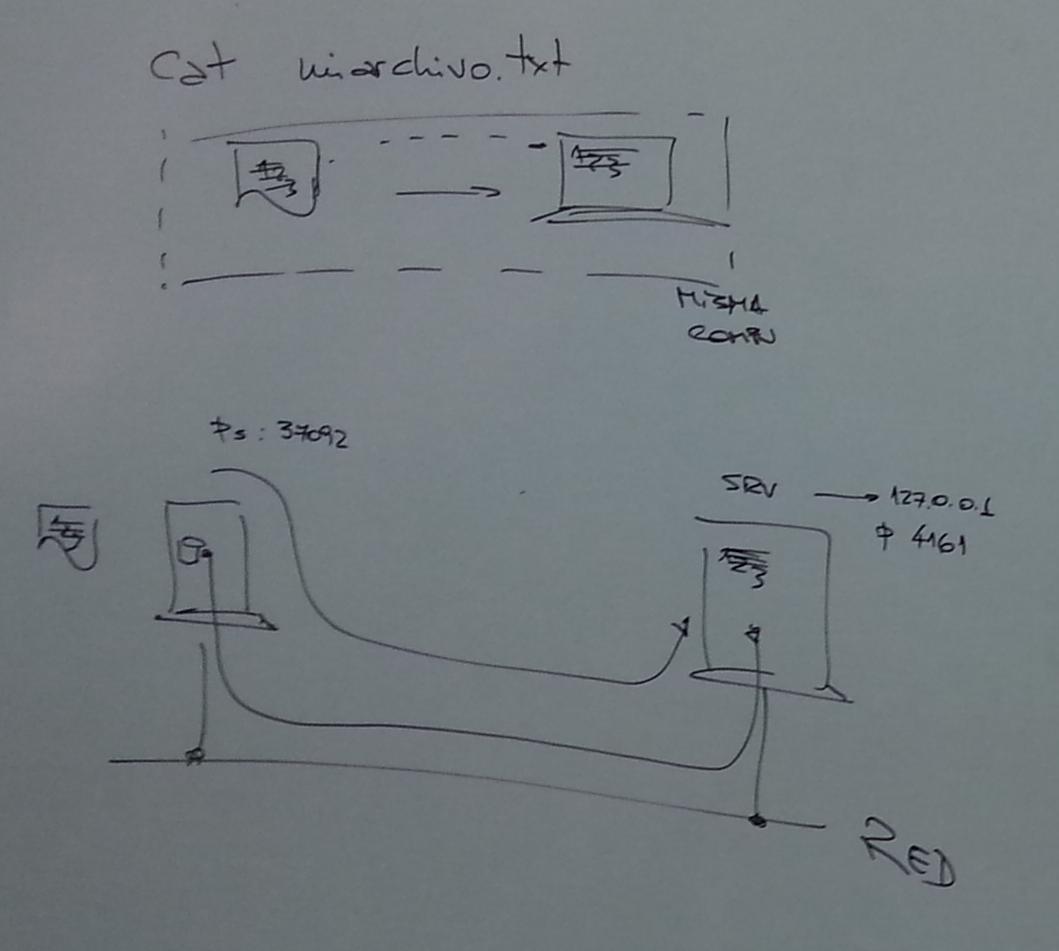 Cat miarchivo.txt
123
123
MISMA
COMPU
Ps: 37092
SRV → 127.0.0.1
P 4161
123
123
RED